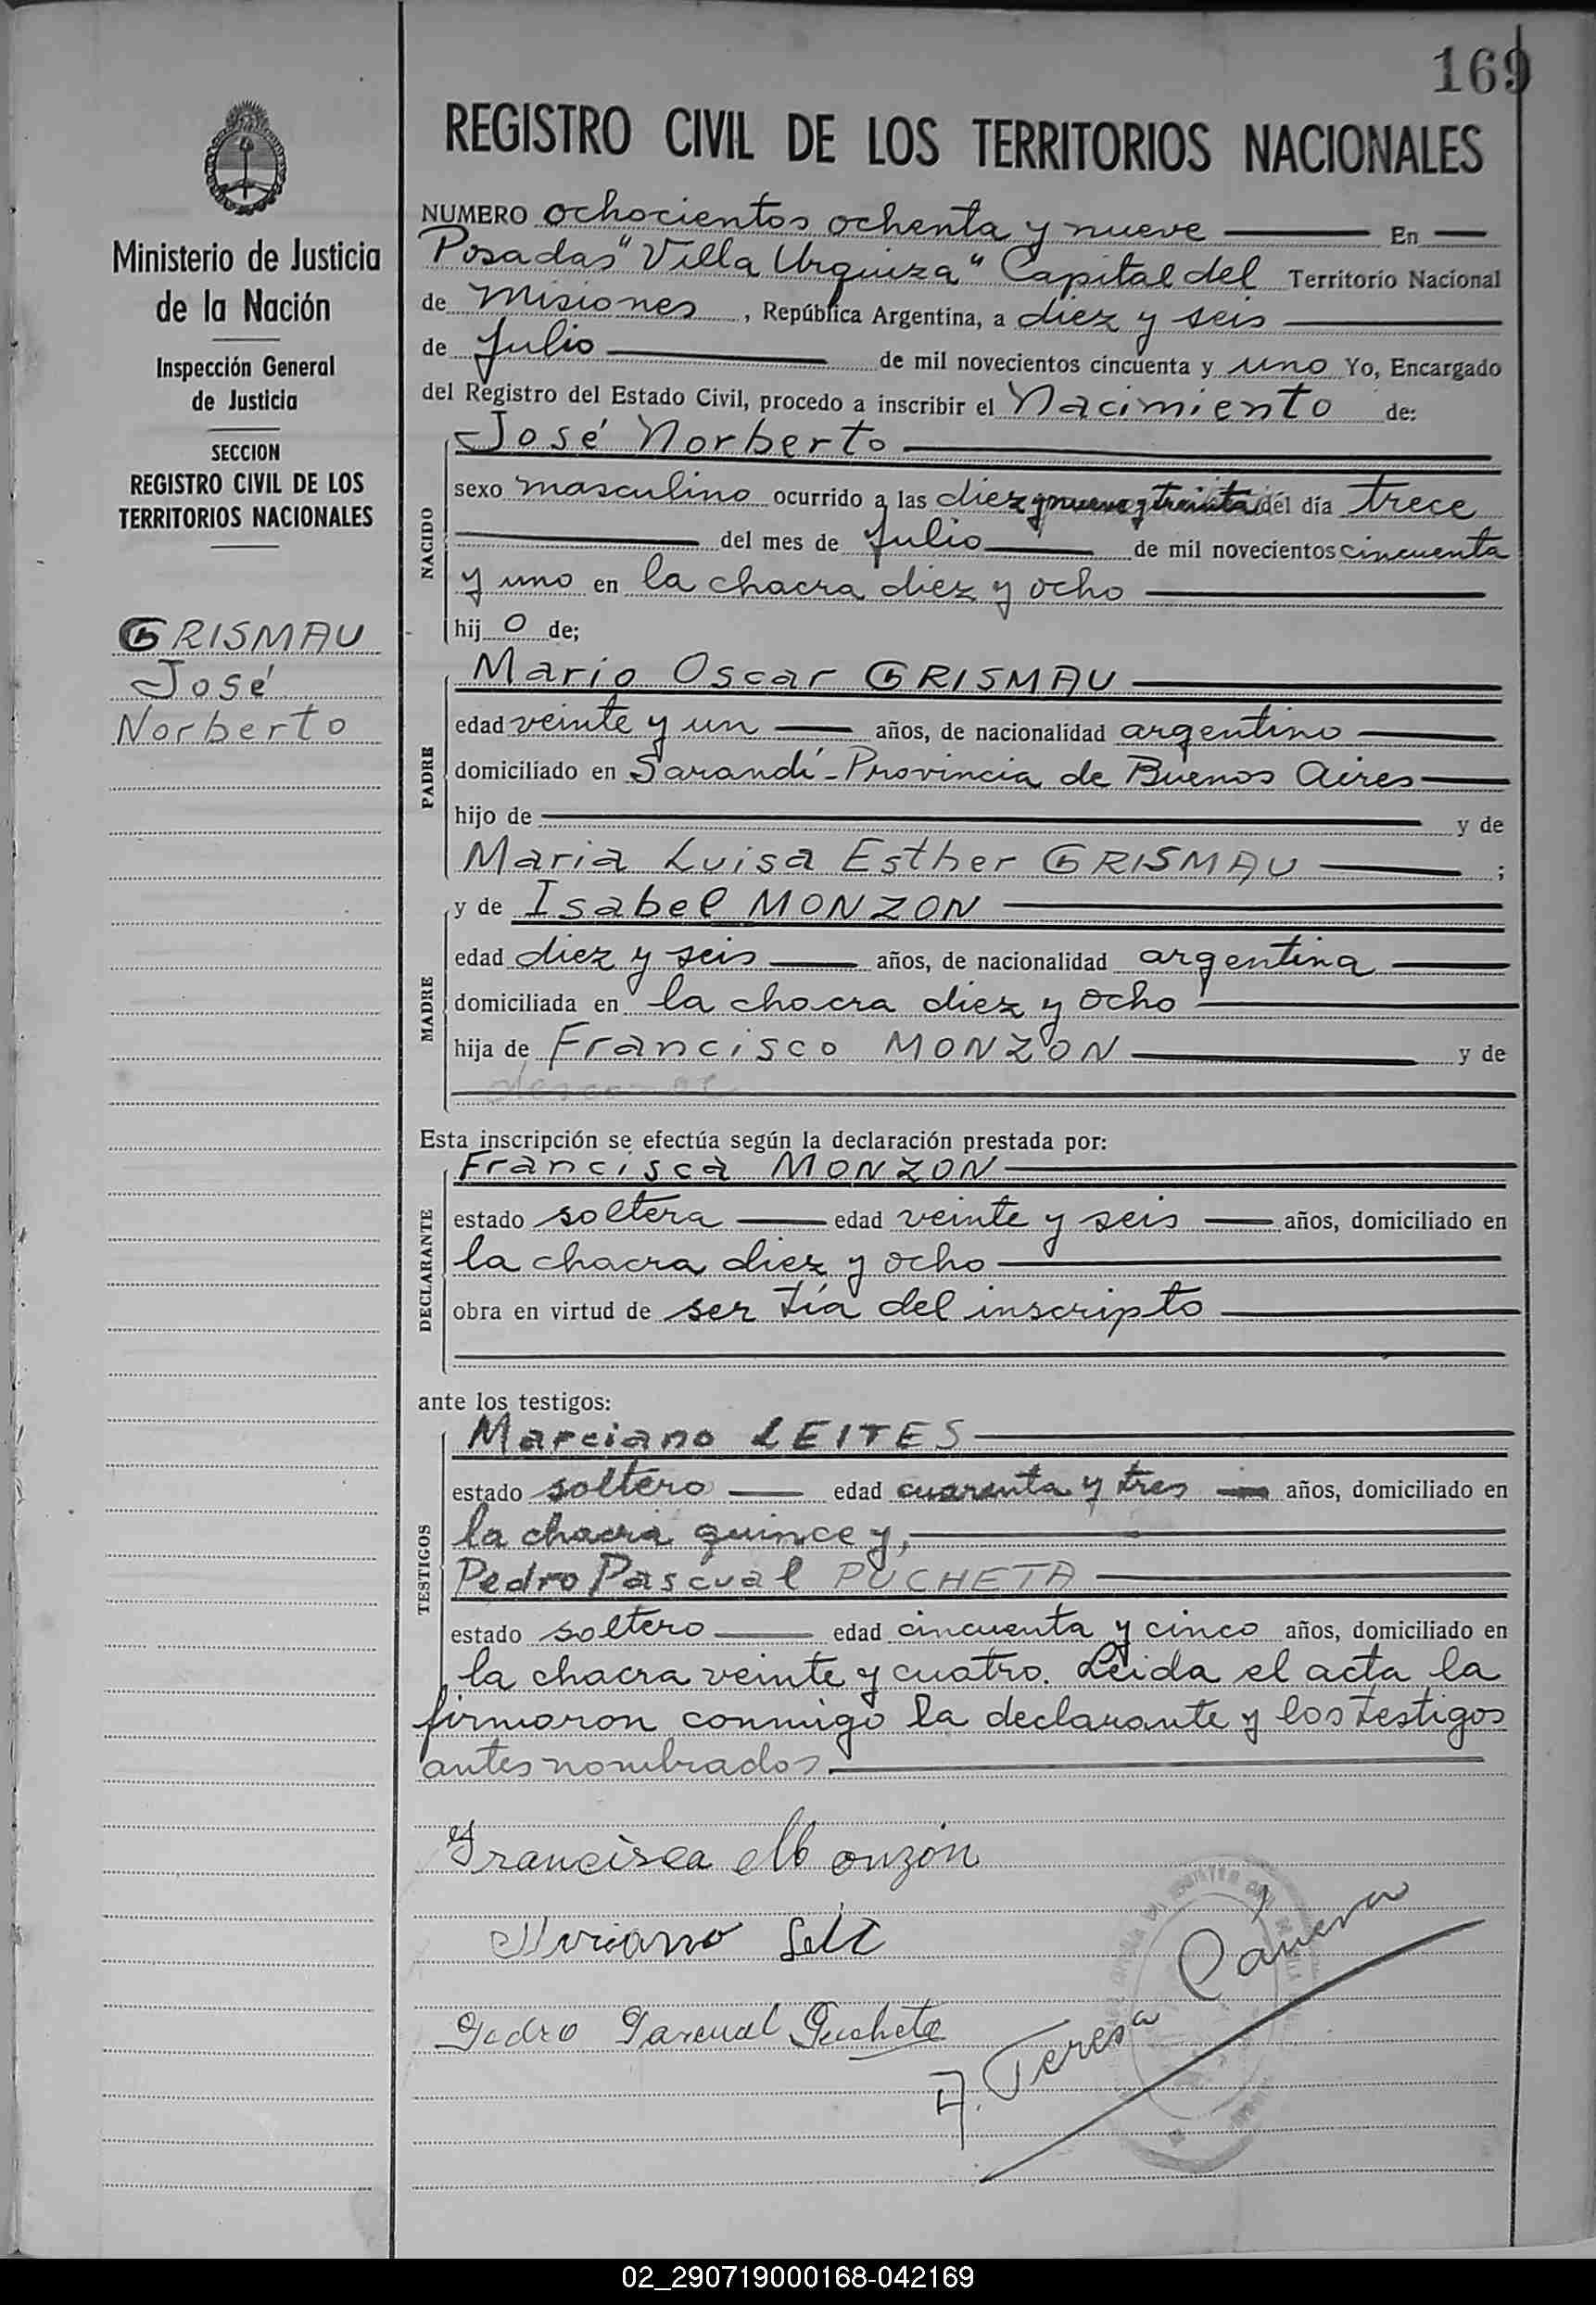 169
REGISTRO CIVIL DE LOS TERRITORIOS NACIONALES
Ministerio de Justicia
de la Nación
Inspección General
de Justicia
SECCION
REGISTRO CIVIL DE LOS
TERRITORIOS NACIONALES
GRISMAU
José
Norberto
NUMERO ochocientos ochenta y nueve En
Posadas "Villa Urquiza" Capital del Territorio Nacional
de Misiones, República Argentina, a diez y seis
de Julio de mil novecientos cincuenta y uno Yo, Encargado
del Registro del Estado Civil, procedo a inscribir el Nacimiento de:
NACIDO
José Norberto
sexo masculino ocurrido a las diez y nueve y treinta del día trece
del mes de Julio de mil novecientos cincuenta
y uno en la chacra diez y ocho
hij o de;
PADRE
Mario Oscar GRISMAU
edad veinte y un años, de nacionalidad argentino
domiciliado en Sarandí - Provincia de Buenos Aires
hijo de y de
Maria Luisa Esther GRISMAU ;
MADRE
y de Isabel MONZON
edad diez y seis años, de nacionalidad argentina
domiciliada en la chacra diez y ocho
hija de Francisco MONZON y de
Esta inscripción se efectúa según la declaración prestada por:
DECLARANTE
Francisca MONZON
estado soltera edad veinte y seis años, domiciliado en
la chacra diez y ocho
obra en virtud de ser tía del inscripto
ante los testigos:
TESTIGOS
Marciano LEITES
estado soltero edad cuarenta y tres años, domiciliado en
la chacra quince y,
Pedro Pascual PUCHETA
estado soltero edad cincuenta y cinco años, domiciliado en
la chacra veinte y cuatro. Leida el acta la
firmaron conmigo la declarante y los testigos
antes nombrados.
Francisca Monzón
Pedro Pascual Pucheta
A. Teresa
02_290719000168-042169